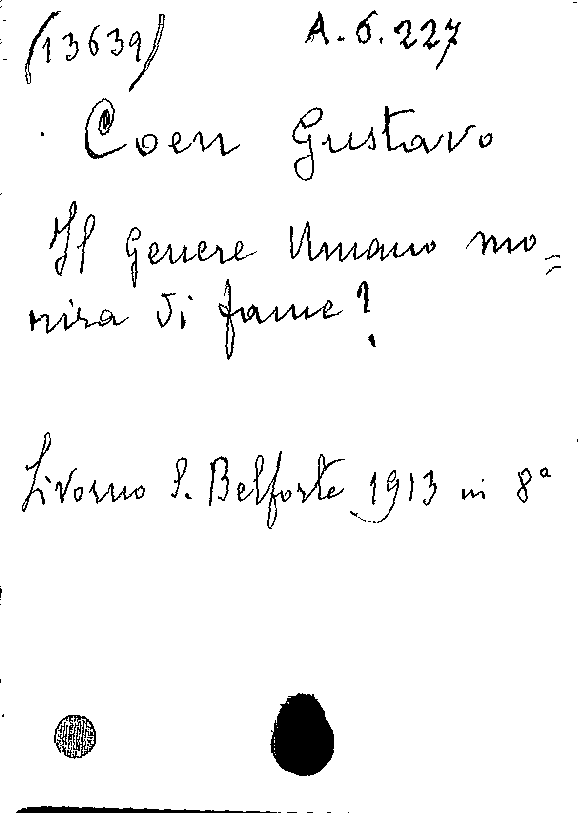 (13639) A. 6. 227
Coen Gustavo
Il genere Umano mo=
rira di fame?
Livorno S. Belforte 1913 in 8ª